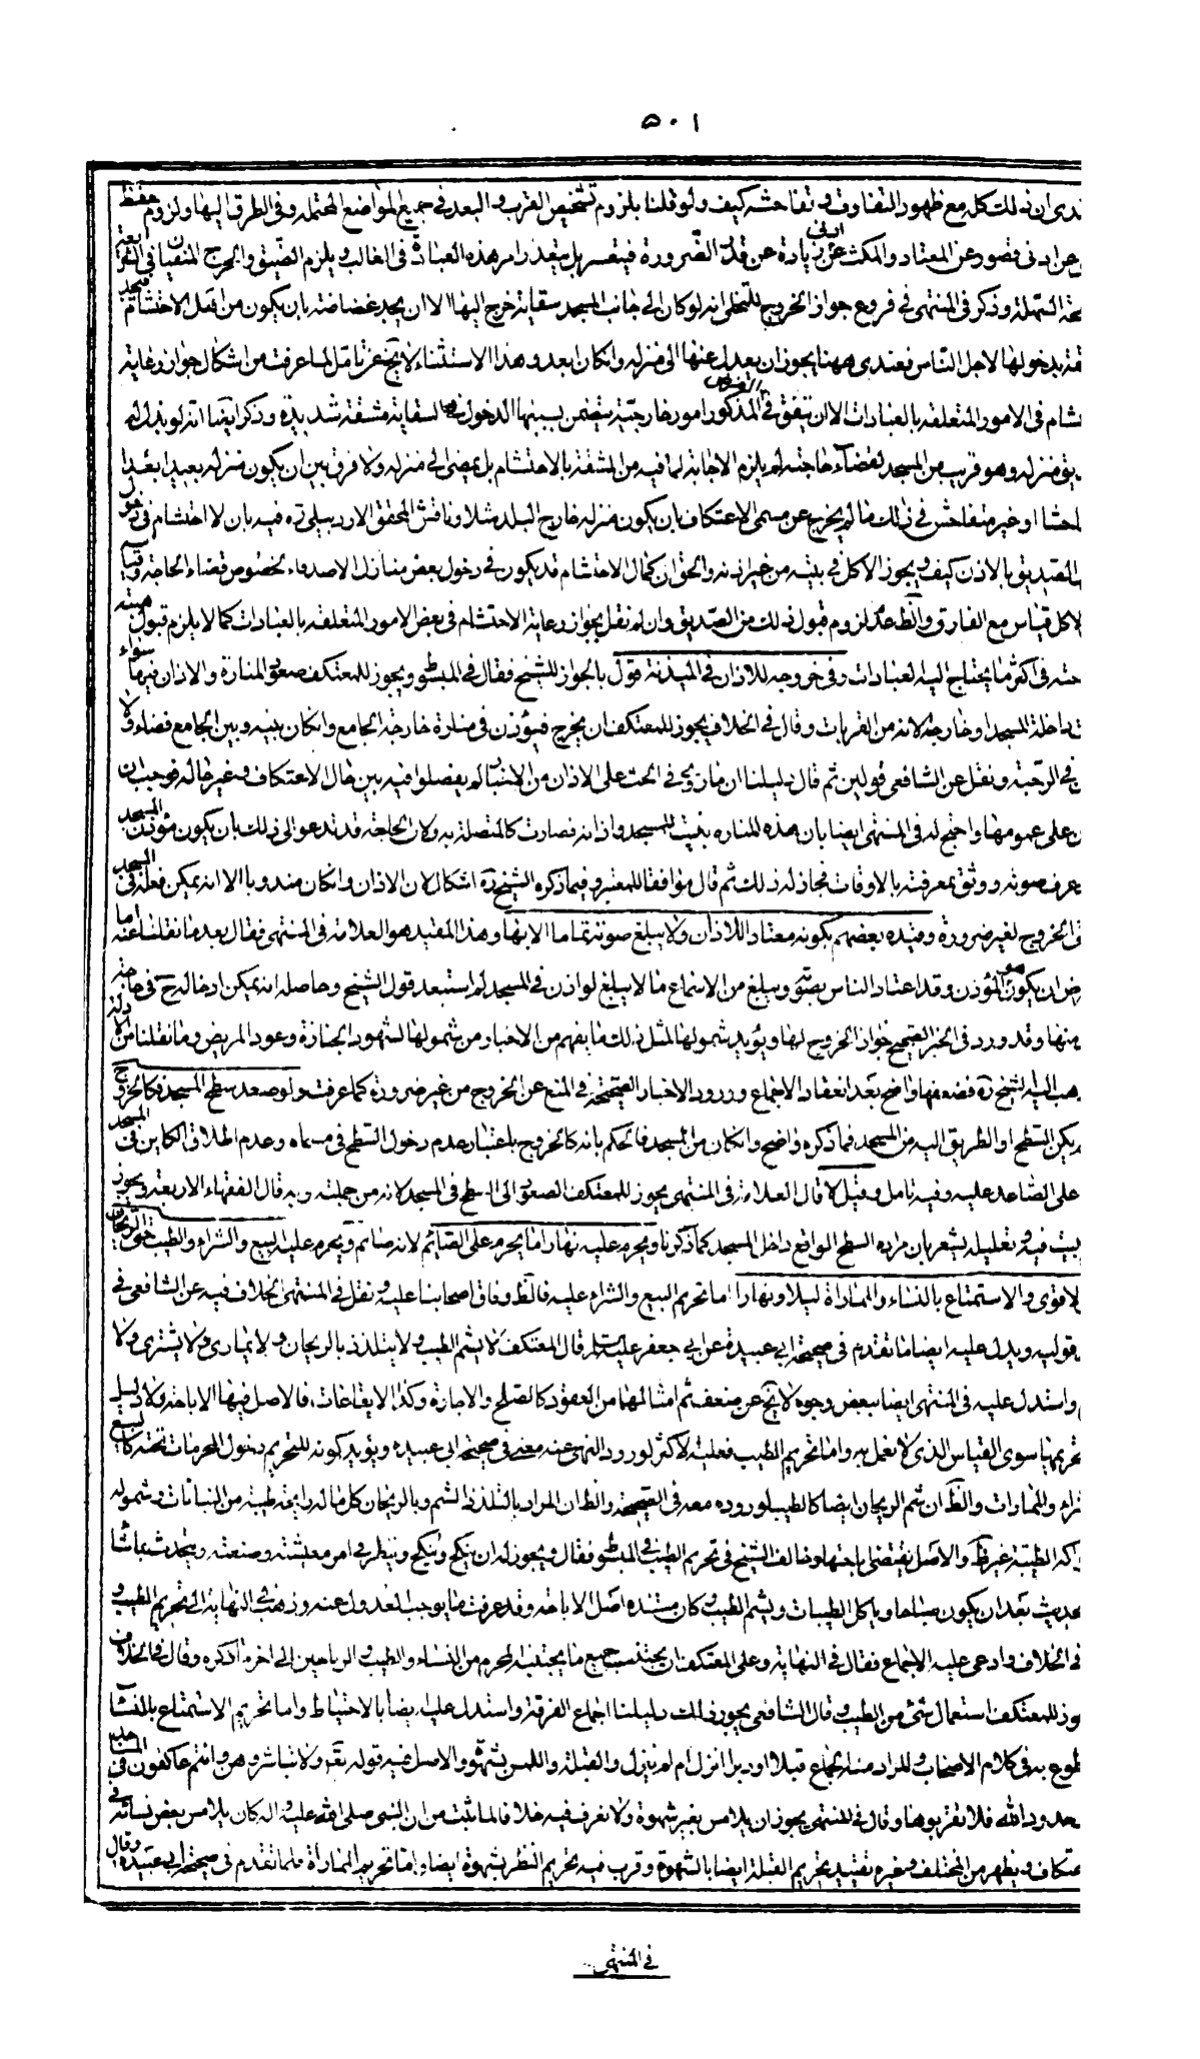 ٥٠١
ندى ان ذلك كله مع ظهور التفاوت و تفاحشه كيف ولو قلنا بلزوم تشخيص القرب والبعد فى جميع المواضع المحتمله وفى الطرق اليها ولزوم حفظ
عن ادنى قصور عن المعتاد والمكث عن ادنى زيادة عن قدر الضرورة فيتعسر بل يتعذر امر هذه العبادة فى الغالب ويلزم الضيق والحرج المنفيان فى الشريعة
السهلة وذكر فى المنتهى فى فروع جواز الخروج للتخلى انه لو كان الى جانب المسجد سقاية خرج اليها الا ان يجد غضاضة بان يكون من اهل الاحتشام فيجد
بدخولها لاجل الناس فعندى ههنا يجوز ان يعدل عنها الى منزله وان كان ابعد وهذا الاستثناء لا يخ عن تامل لما عرفت من اشكال جواز رعاية
شام فى الامور المتعلقه بالعبادات الا ان يتفق فى الفرض المذكور امور خارجية يتضمن بسببها الدخول السقاية مشقة شديدة وذكر ايضا انه لو بذل له
يق منزله وهو قريب من المسجد لقضاء حاجته لم يلزم الاجابة لما فيه من المشقة بالاحتشام بل يمضى الى منزله ولا فرق بين ان يكون منزله بعيدا بعدا
احشا او غير متفاحش فى ذلك ما لم يخرج عن مسمى الاعتكاف بان يكون منزله خارج البلد مثلا وناقش المحقق الاردبيلى ره فيه بان لا احتشام فى دخول
الصديق بالاذن كيف ويجوز الاكل فى بيته من غير اذنه والحق ان كمال الاحتشام قد يكون فى دخول بعض منازل الاصدقاء لخصوص قضاء الحاجة وقياسه
لاكل قياس مع الفارق والظ عدم لزوم قبول ذلك من الصديق وان لم نقل بجواز رعاية الاحتشام فى بعض الامور المتعلقه بالعبادات كما لا يلزم قبول هبته
حته فى اكثر ما يحتاج اليه العبادات وفى خروجه للاذان فى الميذنة قول بالجواز للشيخ فقال فى المبسوط ويجوز للمعتكف صعود المنارة والاذان فيها سواء
داخلة المسجد او خارجة لانه من القربات وقال فى الخلاف يجوز للمعتكف ان يخرج فيؤذن فى منارة خارجة الجامع وان كان بينه وبين الجامع فضاء ولا
فى الرحبة ونقل عن الشافعى قولين ثم قال دليلنا ان ما روى فى الحث على الاذان من الاخبار لم يفصلوا فيه بين حال الاعتكاف وغير حاله فوجب ان
على عمومها واحتج له فى المنتهى ايضا بان هذه المناره بنيت للمسجد واذانه فصارت كالمتصلة به ولان الحاجة قد تدعو الى ذلك بان يكون مؤذن المسجد
عرف صوته ووثق بمعرفته بالاوقات فجاز له ذلك ثم قال موافقا للمعتبر وفيما ذكره الشيخ ره اشكال لان الاذان وان كان مندوبا الا انه يمكن فعله فى المسجد
الخروج لغير ضرورة وقيده بعضهم بكونه معتادا للاذان ولا يبلغ صوته تماما الا بها وهذا المقيد هو العلامة فى المنتهى فقال بعد ما نقلنا عنه اما
رض ان يكون هو المؤذن وقد اعتاد الناس بصوته ويبلغ من الاسماع ما لا يبلغ لو اذن فى المسجد لم استبعد قول الشيخ وحاصله انه يمكن ادخاله ح فى حاجة
منها وقد ورد فى الخبر الصحيح جواز الخروج لها ويؤيد شمولها لمثل ذلك ما يفهم من الاخبار من شمولها لشهود الجنازة وعود المريض وما نقلنا من الادلة
هب اليه الشيخ ره فضعفها واضح بعد انعقاد الاجماع وورود الاخبار الصحيحة فى المنع عن الخروج من غير ضرورة كما عرفت ولو صعد سطح المسجد فكالخروج
يكن السطح او الطريق اليه من المسجد فما ذكره واضح وان كان من المسجد فالحكم بانه كالخروج باعتبار عدم دخول السطح فى مسماه وعدم اطلاق الكاين فى المسجد
على الصاعد عليه وفيه تامل وقيل لا قال العلامة فى المنتهى يجوز للمعتكف الصعود الى السطح فى المسجد لانه من جملته وبه قال الفقهاء الاربعة ويجوز
يبيت فيه وتعليله يشعر بان مراده السطح الواقع داخل المسجد كما ذكرنا ويحرم عليه نهارا ما يحرم على الصائم لانه صائم ويحرم عليه البيع والشراء والطيب حتى الريحان
لاقوى والاستمتاع بالنساء والمماراة ليلا ونهارا اما تحريم البيع والشراء عليه فالظ وفاق اصحابنا عليه ونقل فى المنتهى الخلاف فيه عن الشافعى فى
قوليه ويدل عليه ايضا ما تقدم فى صحيحة ابى عبيدة عن ابى جعفر عليه السلم قال المعتكف لا يشم الطيب ولا يتلذذ بالريحان ولا يمارى ولا يشترى ولا
واستدل عليه فى المنتهى ايضا ببعض وجوه لا يخ عن ضعف ثم امثالهما من العقود كالصلح والاجارة وكذا الايقاعات، فالاصل فيها الاباحة ولا دليل
تحريمها سوى القياس الذى لا نعمل به واما تحريم الطيب فعليه الاكثر لورود النهى عنه فى صحيحة ابى عبيده ويؤيد كونه للتحريم دخول المحرمات تحته كالبيع
راء والمماراة والظ ان شم الريحان ايضا كالطيب لوروده معه فى الصحيحة والظ ان المراد بالتلذذ الشم وبالريحان كل ما له رايحة طيبة من النباتات وشموله
اكه الطيبة غير ظ والاصل يقتضى اباحتها وخالف الشيخ فى تحريم الطيب فى المبسوط فقال ويجوز له ان ينكح وينكح وينظر فى امر معيشته وصنعته ويتحدث بما شاء
لحديث بعد ان يكون مباحا وياكل الطيبات ويشم الطيب وكان مستنده اصل الاباحة وقد عرفت ما يوجب العدول عنه وذهب فى النهاية الى تحريم الطيب و
فى الخلاف وادعى عليه الاجماع فقال فى النهاية وعلى المعتكف ان يجتنب جميع ما يجتنبه المحرم من النساء والطيب والرياحين الى اخر ما ذكره وقال فى الخلاف
وز للمعتكف استعمال شئ من الطيب وقال الشافعى يجوز ذلك دليلنا اجماع الفرقة واستدل عليه ايضا بالاحتياط واما تحريم الاستمتاع بالنساء
طوع به فى كلام الاصحاب والمراد منه الجماع قبلا او دبرا انزل ام لم ينزل والقبلة واللمس بشهوة والاصل فيه قوله تعم ولا تباشروهن وانتم عاكفون فى المساجد
حدود الله فلا تقربوها وقال فى المنتهى يجوز ان يلامس بغير شهوة ولا نعرف فيه خلافا لما ثبت من ان النبى صلى الله عليه واله كان يلامس بعض نسائه فى
عتكاف ويظهر من المختلف وغيره تقييد تحريم القبلة ايضا بالشهوة وقرب فيه تحريم النظر بشهوة ايضا واما تحريم المماراة فلما تقدم فى صحيحة ابى عبيدة وقال
فى المنتهى